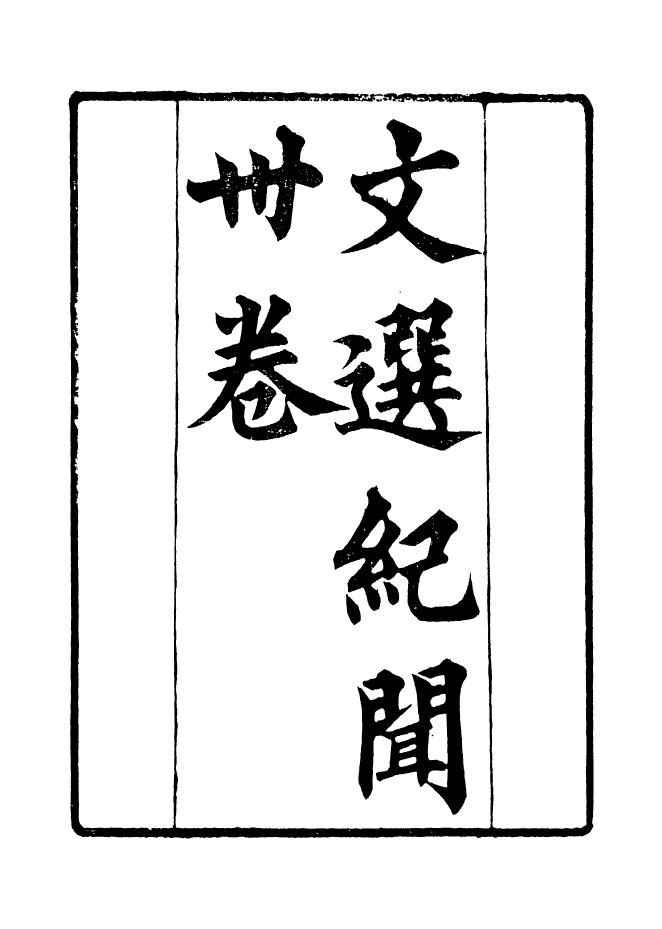 文選紀聞
卅卷